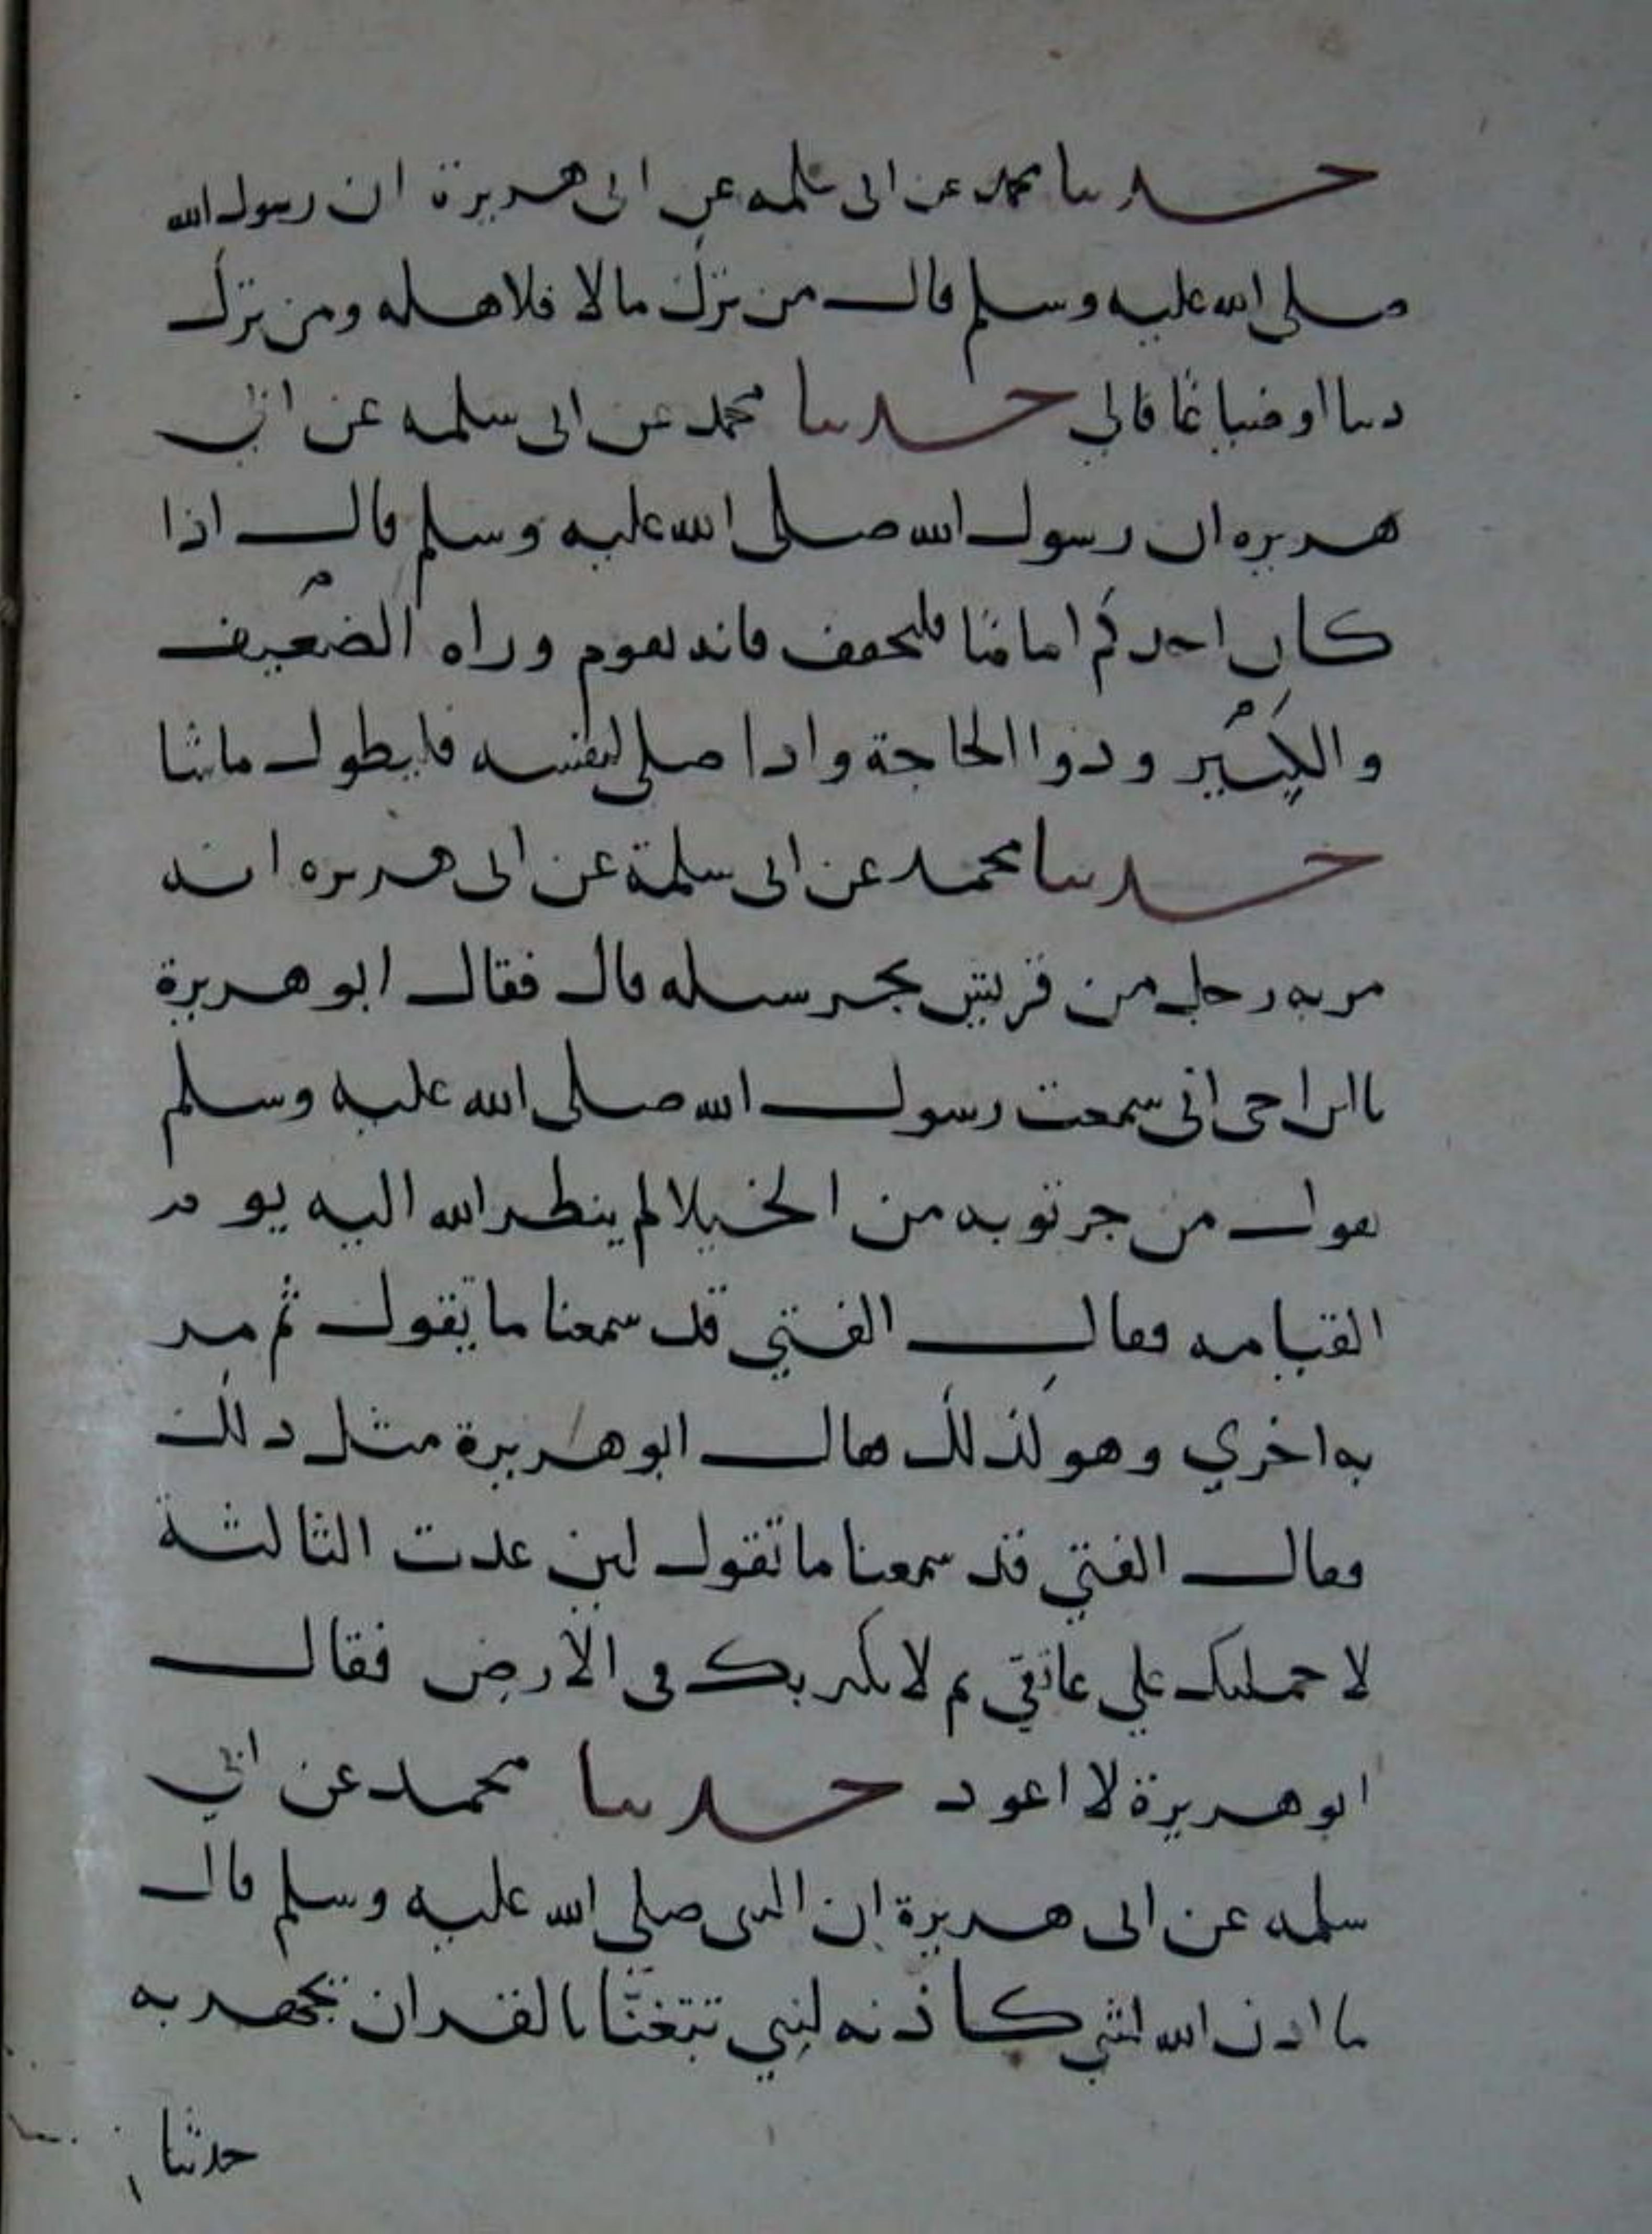 حدثنا محمد عن ابى سلمه عن ابى هريرة ان رسول الله
صلى الله عليه وسلم قال من ترك مالا فلاهله ومن ترك
دينا او ضياعًا فالي حدثنا محمد عن ابى سلمه عن ابي
هريره ان رسول الله صلى الله عليه وسلم قال اذا
كان احدكم اماما فليخفف فانه يقوم وراه الضعيف
والكبير وذوا الحاجة واذا صلى لنفسه فليطول ماشا
حدثنا محمد عن ابى سلمة عن ابى هريره انه
مر به رجل من قريش يجر سبله قال فقال ابو هريرة
يا ابن اخى انى سمعت رسول الله صلى الله عليه وسلم
يقول من جر ثوبه من الخيلا لم ينظر الله اليه يوم
القيامه فقال الفتي قد سمعنا ما يقول ثم مر
به اخري وهو كذلك فقال ابو هريرة مثل ذلك
فقال الفتي قد سمعنا ما تقول لين عدت الثالثة
لا حملنك علي عاتقي ثم لا نكبن بك فى الارض فقال
ابو هريرة لا اعود حدثنا محمد عن ابي
سلمه عن ابى هريرة ان النبى صلي الله عليه وسلم قال
ما اذن الله لشي كاذنه لنبي يتغنا بالقران يجهر به
حدثنا